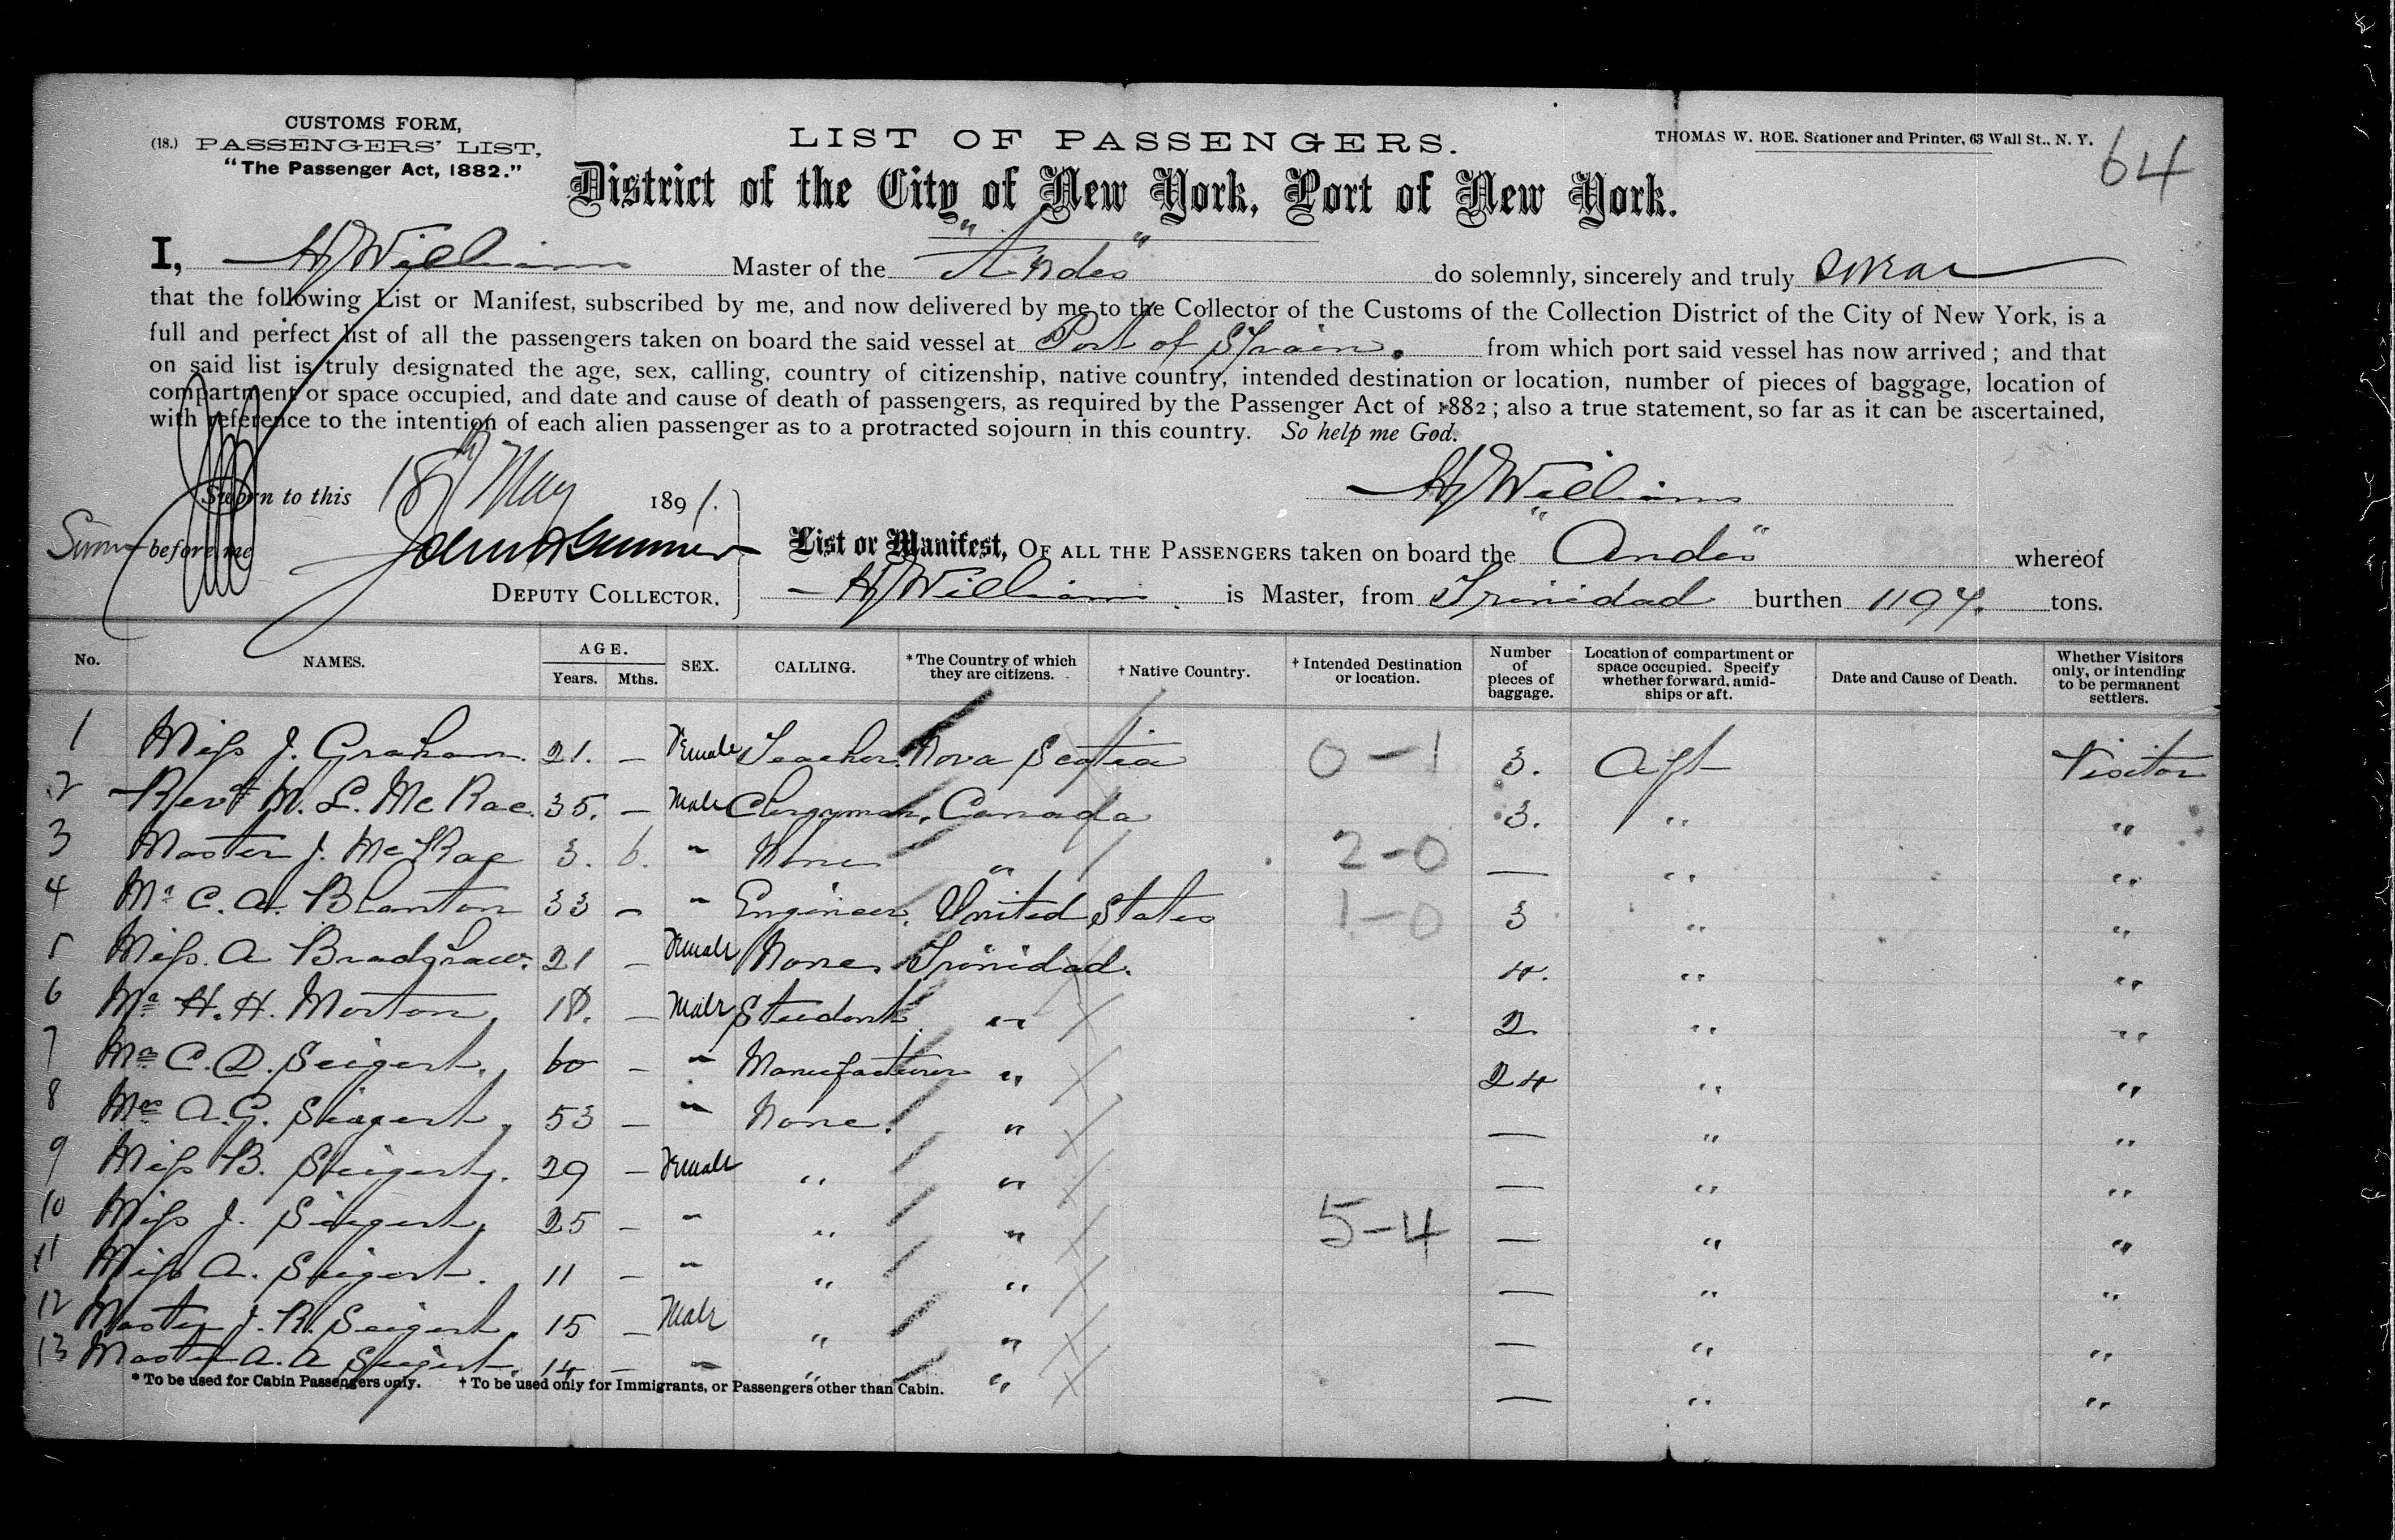 CUSTOMS FORM,
(18.) PASSENGERS' LIST,
"The Passenger Act, 1882."
LIST OF PASSENGERS.
THOMAS W. ROE. Stationer and Printer, 63 Wall St., N. Y.
64
District of the City of New York, Port of New York.
I, Williams Master of the "Andes" do solemnly, sincerely and truly swear
that the following List or Manifest, subscribed by me, and now delivered by me to the Collector of the Customs of the Collection District of the City of New York, is a
full and perfect list of all the passengers taken on board the said vessel at Port of Spain. from which port said vessel has now arrived; and that
on said list is truly designated the age, sex, calling, country of citizenship, native country, intended destination or location, number of pieces of baggage, location of
compartment or space occupied, and date and cause of death of passengers, as required by the Passenger Act of 1882; also a true statement, so far as it can be ascertained,
with reference to the intention of each alien passenger as to a protracted sojourn in this country. So help me God.
Sworn to this 18th May 1891.
Williams
before me
DEPUTY COLLECTOR.
List or Manifest, OF ALL THE PASSENGERS taken on board the "Andes" whereof
Williams is Master, from Trinidad burthen 1194. tons.
No. NAMES. AGE. Years. Mths. SEX. CALLING. *The Country of which they are citizens. †Native Country. †Intended Destination or location. Number of pieces of baggage. Location of compartment or space occupied. Specify whether forward, amidships or aft. Date and Cause of Death. Whether Visitors only, or intending to be permanent settlers.
1 Miss J. Graham. 21. — Female Teacher. Nova Scotia 0-1 3. Aft Visitor
2 Revd M. L. McRae. 35. — Male Clergyman. Canada 3. " "
3 Master J. McRae 3. 6. " None " 2-0 — " "
4 Mr C. A. Blanton 33 — " Engineer. United States 1-0 3 " "
5 Miss. A Bradshaw. 21 — Female None. Trinidad. 4. " "
6 Mr H. H. Morton. 18. — Male Student " 2 " "
7 Mr C. D. Seigert. 60 — " Manufacturer " 24 " "
8 A. G. Seigert. 53 — " None. " — " "
9 Miss B. Seigert. 29 — Female " " — " "
10 Miss J. Seigert. 25 — " " " 5-4 — " "
11 Miss A. Seigert. 11 — " " " — " "
12 Master J. R. Seigert. 15 — Male " " — " "
13 Master A. A Seigert. 14 — " " " — " "
* To be used for Cabin Passengers only. † To be used only for Immigrants, or Passengers other than Cabin.